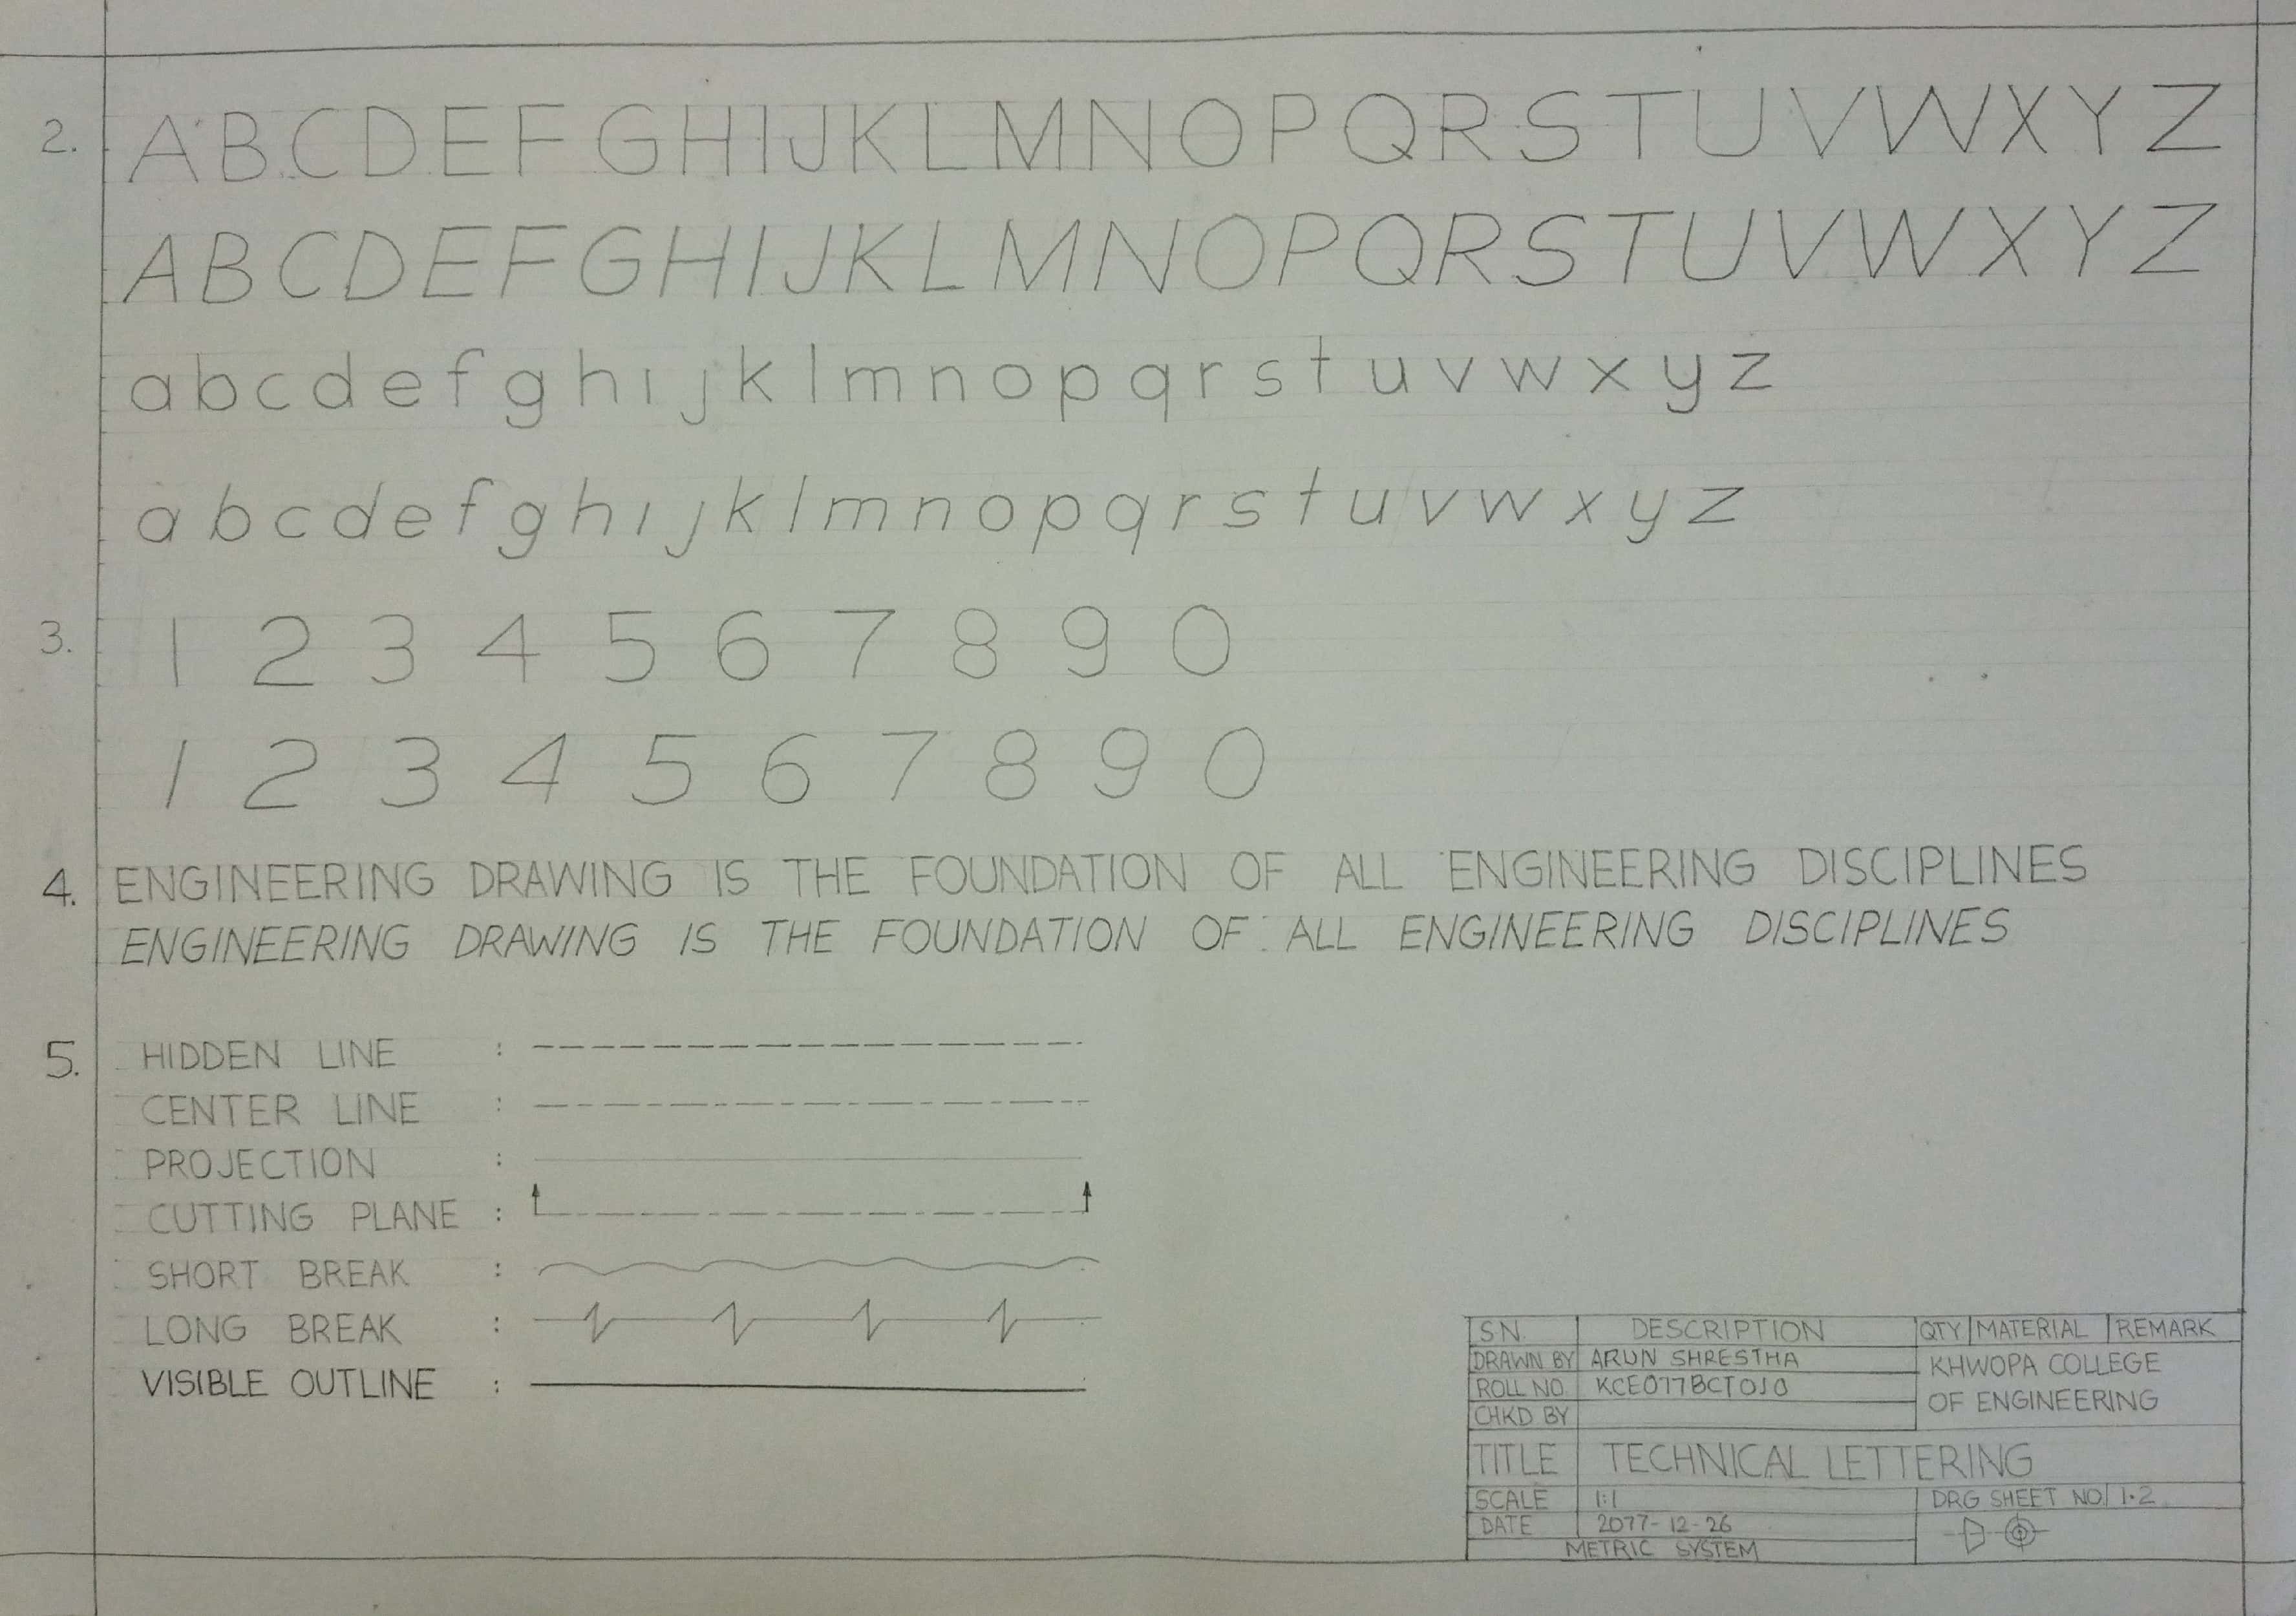 2. A B C D E F G H I J K L M N O P Q R S T U V W X Y Z
A B C D E F G H I J K L M N O P Q R S T U V W X Y Z
a b c d e f g h i j k l m n o p q r s t u v w x y z
a b c d e f g h i j k l m n o p q r s t u v w x y z
3. 1 2 3 4 5 6 7 8 9 0
1 2 3 4 5 6 7 8 9 0
4. ENGINEERING DRAWING IS THE FOUNDATION OF ALL ENGINEERING DISCIPLINES
ENGINEERING DRAWING IS THE FOUNDATION OF ALL ENGINEERING DISCIPLINES
5. HIDDEN LINE :
CENTER LINE :
PROJECTION :
CUTTING PLANE :
SHORT BREAK :
LONG BREAK :
VISIBLE OUTLINE :
S.N. DESCRIPTION QTY MATERIAL REMARK
DRAWN BY ARUN SHRESTHA
ROLL NO. KCE077BCT010
CHKD BY
KHWOPA COLLEGE
OF ENGINEERING
TITLE TECHNICAL LETTERING
SCALE 1:1 DRG SHEET NO. 1.2
DATE 2077-12-26
METRIC SYSTEM